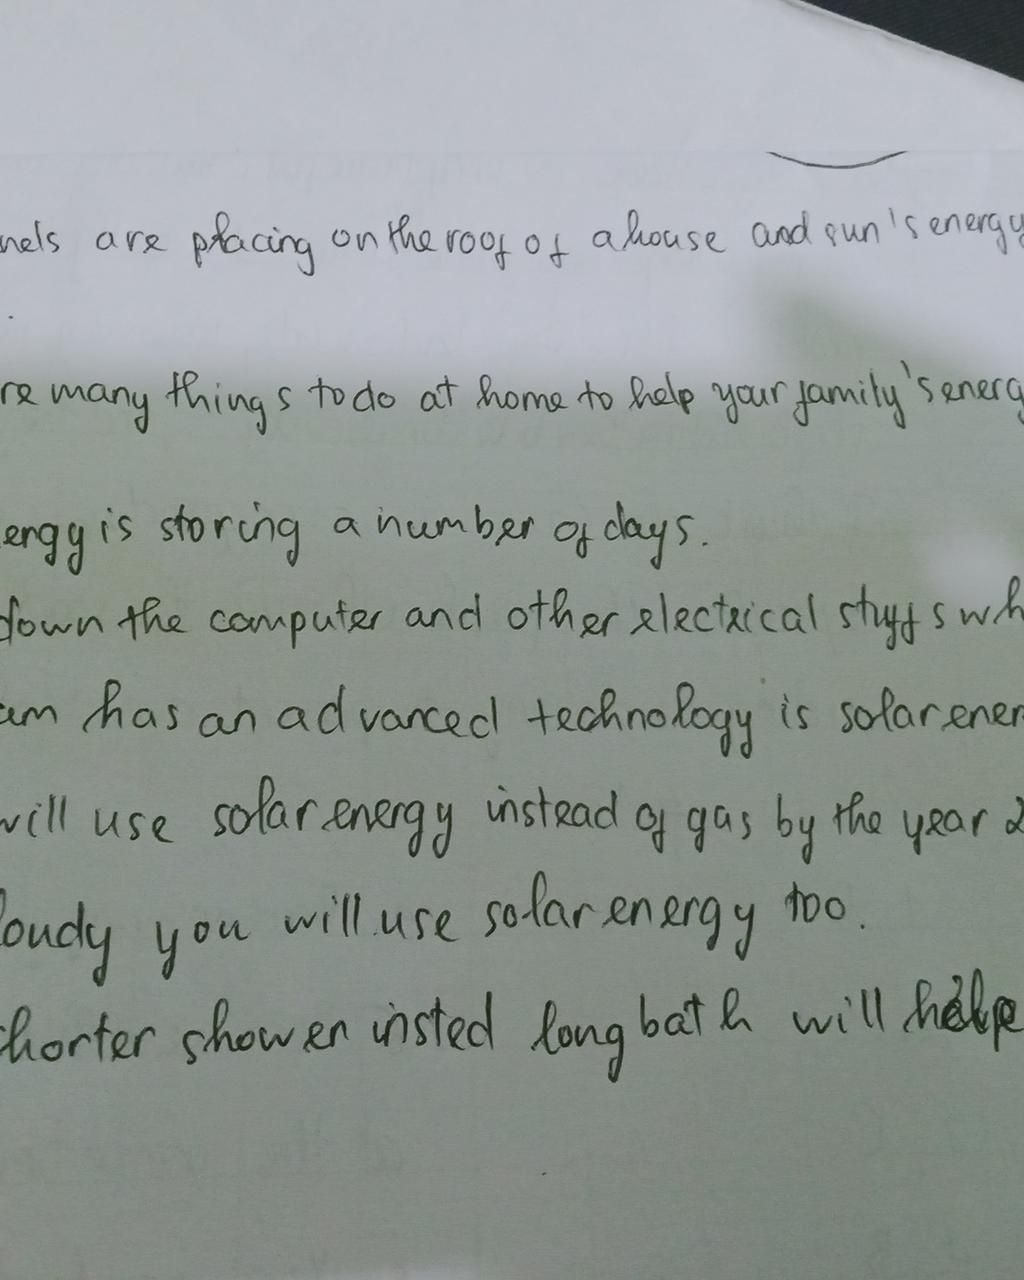 nels are placing on the roof of a house and sun's energy
.
re many things to do at home to help your family's energ
ergy is storing a number of days.
down the computer and other electrical stuffs wh
am has an advanced technology is solar ener
will use solar energy instead of gas by the year 2
loudy you will use solar energy too.
horter shower insted long bath will help